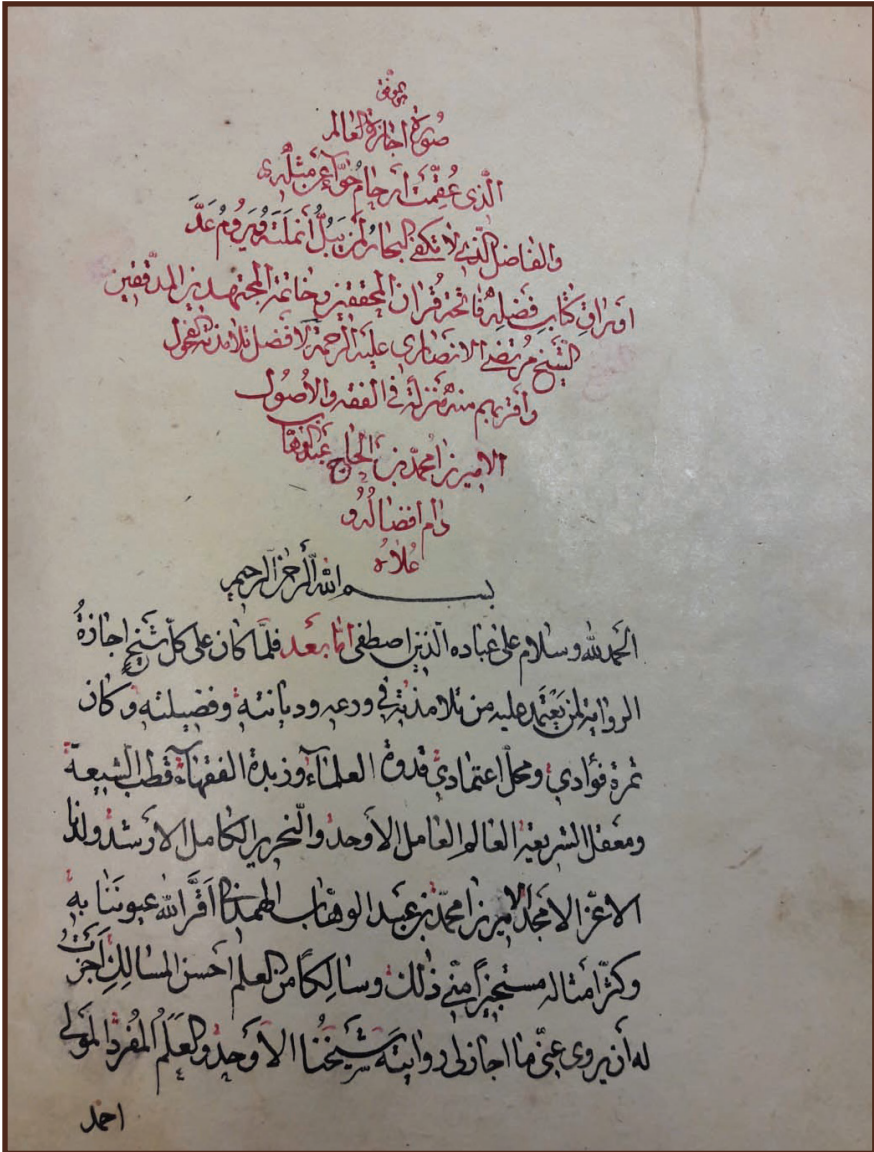 صُورَة اجازة العالم
الّذى عُقِمَت ارحام حوّآء عن مثله و
والفاضل الّذى لا تكفى البحار لمن يبلّ أنملته ويروم عدّ
اوراق كتاب فضله فاتحة قران المحققين وخاتمة المجتهدين المدققين
الشيخ مرتضى الانصارى عليه الرحمة لافضل تلامذته الفحول
وأقربهم منه منزلة فى الفقه والأصول
الاميرزا محمّد بن الحاج عبد الوهّاب
دام افضاله و
علاه
بسم الله الرّحمن الرحيم
الحمد لله وسلام على عباده الّذين اصطفى امّا بعد فلمّا كان على كلّ شيخ اجازةُ
الرواية لمن يَعْتَمد عليه من تلامذته في ورعه وديانته وفضيلته وكان
ثمرة فؤادي ومحلّ اعتمادي قدوة العلمآء وزبدة الفقهآء قطب الشيعة
ومعقل الشريعة العالم العامل الأوحد والنّحرير الكامل الاوشد ولدنا
الاعزّ الامجد الاميرزا محمّد بن عبد الوهّاب الهمدانى اَقَرَّ الله عيوننا به
وكثّر امثاله مستجيزاً منّي ذلك وسالكاً من العلم احسن المسالك اَجَزتُ
له أن يروى عنّي ما اجاز لى روايته شيخنا الاوحد والعلم المفرد المولى
احمد